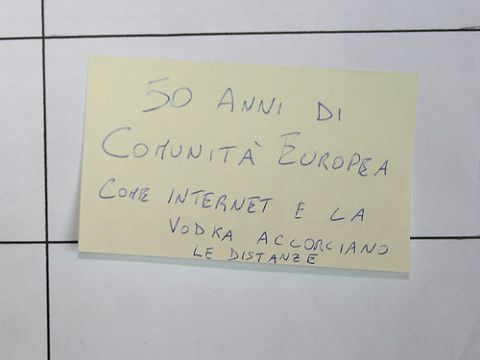 50 ANNI DI
COMUNITÀ EUROPEA
COME INTERNET E LA
VODKA ACCORCIANO
LE DISTANZE